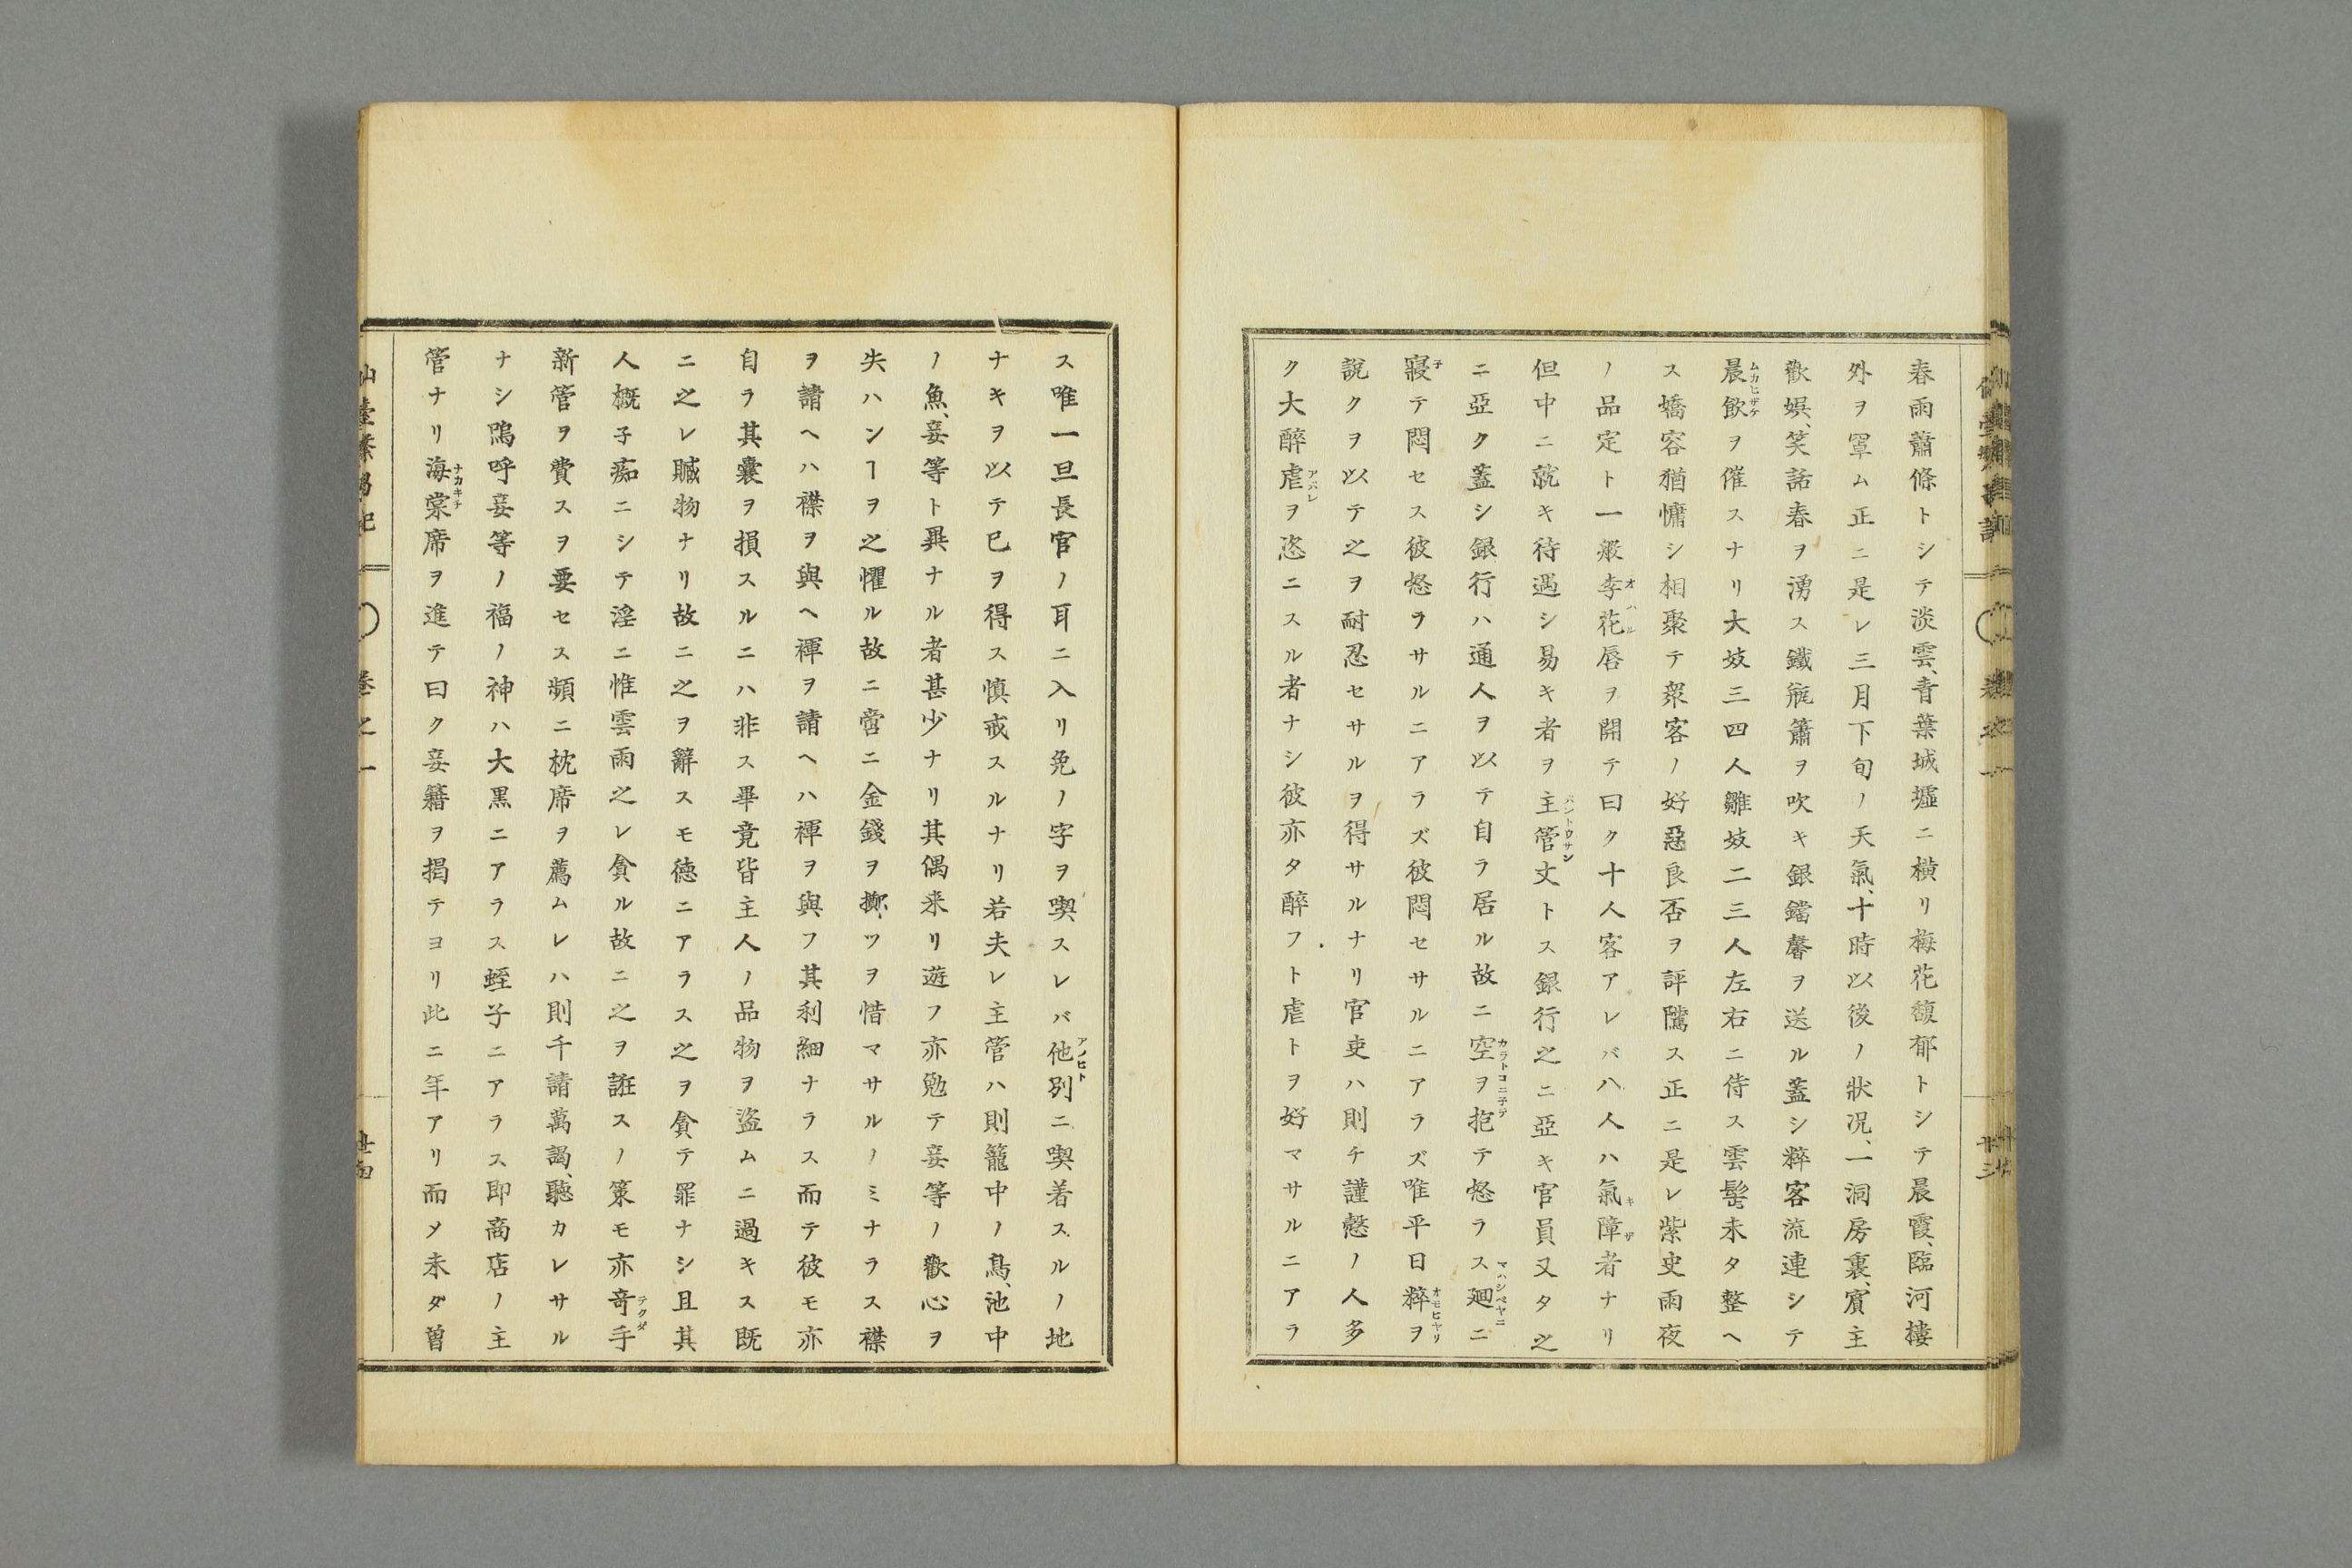 春雨蕭條トシテ淡雲、青葉城墟ニ橫リ梅花馥郁トシテ晨霞、臨河樓
外ヲ罩ム正ニ是レ三月下旬ノ天氣、十時以後ノ狀况、一洞房裏、賓主
歡娯、笑話春ヲ湧ス鐵瓶簫ヲ吹キ銀鐺馨ヲ送ル蓋シ粹客流連シテ
晨飲ムカヒザケヲ催スナリ大妓三四人雛妓二三人左右ニ侍ス雲髻未タ整ヘ
ス嬌容猶慵シ相聚テ衆客ノ好惡良否ヲ評隲ス正ニ是レ紫史雨夜
ノ品定ト一般李花オハル唇ヲ開テ曰ク十人客アレバ八人ハ氣障キザ者ナリ
但中ニ就キ待遇シ易キ者ヲ主管バントウサン丈トス銀行之ニ亞キ官員又タ之
ニ亞ク蓋シ銀行ハ通人ヲ以テ自ラ居ル故ニ空ヲ抱カラトコニ子テテ怒ラス廻マハシベヤニニ
寢子テ悶セス彼怒ラサルニアラズ彼悶セサルニアラズ唯平日粹オモヒヤリヲ
說クヲ以テ之ヲ耐忍セサルヲ得サルナリ官吏ハ則チ謹慤ノ人多
ク大醉虐アバレヲ恣ニスル者ナシ彼亦タ醉フト虐トヲ好マサルニアラ
ス唯一旦長官ノ耳ニ入リ免ノ字ヲ喫スレバ他アノヒト別ニ喫着スルノ地
ナキヲ以テ已ヲ得ス慎戒スルナリ若夫レ主管ハ則籠中ノ鳥、池中
ノ魚、妾等ト異ナル者甚少ナリ其偶来リ遊フ亦勉テ妾等ノ歡心ヲ
失ハンヿヲ之懼ル故ニ啻ニ金錢ヲ擲ツヲ惜マサルノミナラス襟
ヲ請ヘハ襟ヲ與ヘ褌ヲ請ヘハ褌ヲ與フ其利細ナラス而テ彼モ亦
自ラ其嚢ヲ損スルニハ非ス畢竟皆主人ノ品物ヲ盜ムニ過キス既
ニ之レ贓物ナリ故ニ之ヲ辭スモ德ニアラス之ヲ貪テ罪ナシ且其
人概子痴ニシテ淫ニ惟雲雨之レ貪ル故ニ之ヲ誑スノ策モ亦竒手テクダ
新管ヲ費スヲ要セス頻ニ枕席ヲ薦ムレハ則千請萬謁、聽カレサル
ナシ嗚呼妾等ノ福ノ神ハ大黒ニアラス蛭子ニアラス即商店ノ主
管ナリ海棠ナカキチ席ヲ進テ曰ク妾籍ヲ掲テヨリ此ニ年アリ而メ未ダ曽